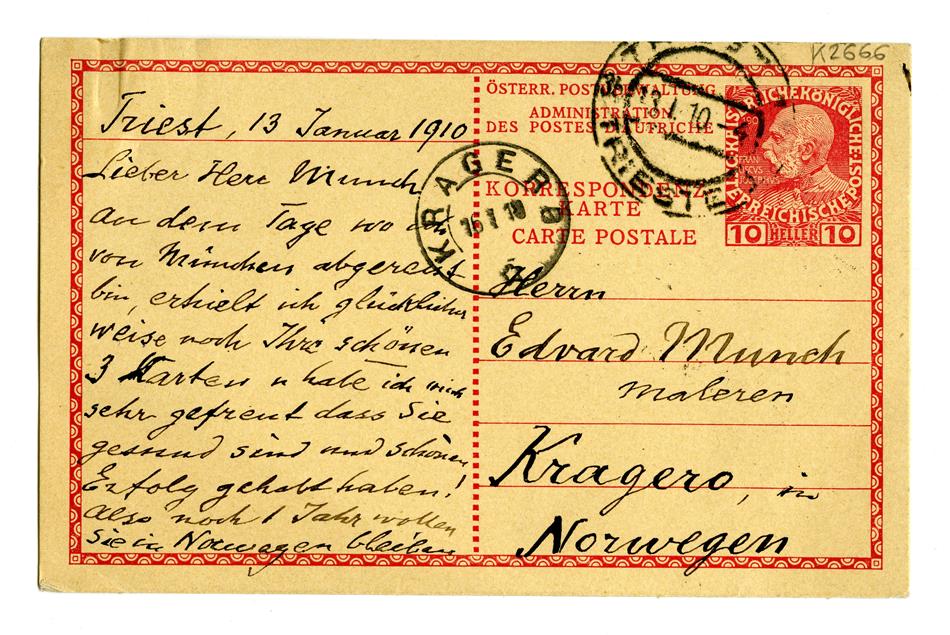 K2666
Triest, 13 Januar 1910
Lieber Herr Munch
an dem Tage wo ich
von München abgereist
bin, erhielt ich glücklicher
weise noch Ihre schönen
3 Karten u habe ich mich
sehr gefreut dass Sie
gesund sind und schönen
Erfolg gehabt haben!
Also noch 1 Jahr wollen
Sie in Norwegen bleiben
ÖSTERR. POSTVERWALTUNG
ADMINISTRATION
DES POSTES D'AUTRICHE
KORRESPONDENZ-
KARTE
CARTE POSTALE
KRAGERØ
15 I 10
TRIESTE
13.I.10
KAIS. KÖNIGLICHE
ÖSTERREICHISCHE POST
10 HELLER 10
Herrn
Edvard Munch
maleren
Kragero, in
Norwegen